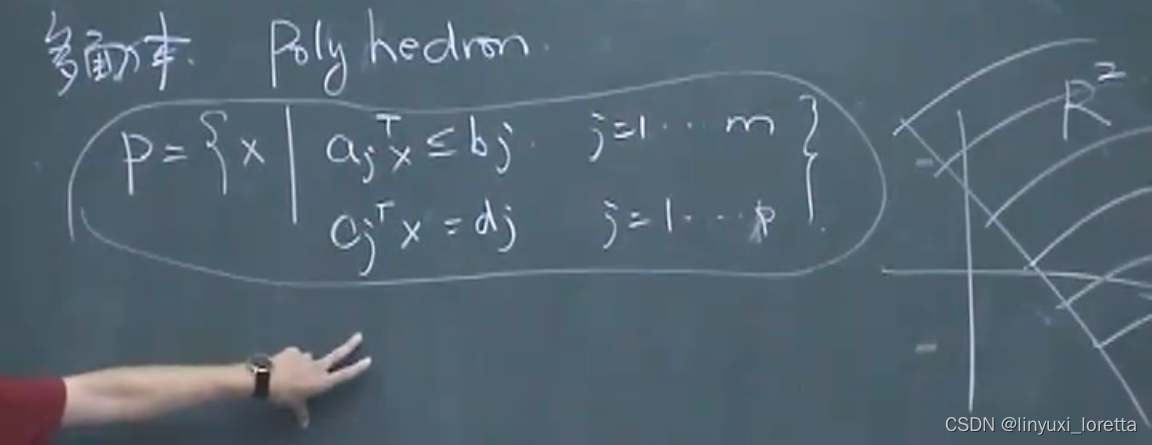 多面体. Polyhedron.
P = { x | a_j^T x ≤ b_j. j=1 ··· m }
c_j^T x = d_j j=1 ··· p
R²
CSDN @linyuxi_loretta